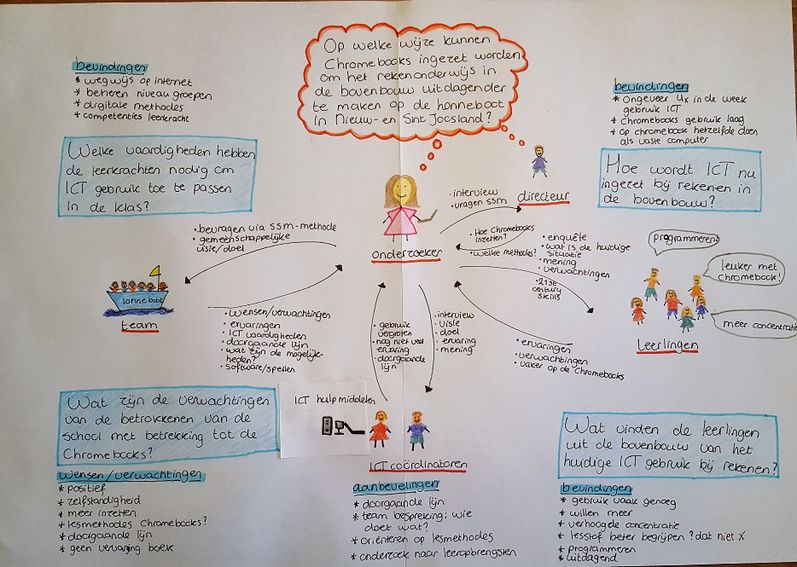 Op welke wijze kunnen
Chromebooks ingezet worden
om het rekenonderwijs in
de bovenbouw uitdagender
te maken op de lonneboot
in Nieuw- en Sint Joosland?
bevindingen
* wegwijs op internet
* beheren niveau groepen
* digitale methodes
* competenties leerkracht
Welke vaardigheden hebben
de leerkrachten nodig om
ICT gebruik toe te passen
in de klas?
bevindingen
* Ongeveer 4x in de week
gebruik ICT
* Chromebooks gebruik laag
* Op chromebook hetzelfde doen
als vaste computer
Hoe wordt ICT nu
ingezet bij rekenen in
de bovenbouw?
directeur
• interview
• vragen ssm
• Hoe Chromebooks
inzetten?
• welke methodes?
onderzoeker
• bevragen via ssm-methode
• gemeenschappelijke
visie/doel
lonneboot
team
• wensen/verwachtingen
• ervaringen
• ICT vaardigheden
• doorgaande lijn
• wat zijn de mogelijk-
heden?
• software/spellen
• enquête
• wat is de huidige
situatie
• mening
• verwachtingen
• 21st
century
skills
programmeren
leuker met
chromebook!
meer concentratie
leerlingen
• ervaringen
• verwachtingen
• vaker op de Chromebooks
• gebruik
vergroten
• nog niet veel
ervaring
• doorgaande
lijn
• interview
• visie
• doel
• ervaring
• mening
ICT hulpmiddelen
ICT coördinatoren
Wat zijn de verwachtingen
van de betrokkenen van de
school met betrekking tot de
Chromebooks?
wensen/verwachtingen
* positief
* zelfstandigheid
* meer inzetten
* lesmethodes Chromebooks?
* doorgaande lijn
* geen vervanging boek
aanbevelingen
* doorgaande lijn
* team bespreking: wie
doet wat?
* oriënteren op lesmethodes
* onderzoek naar leeropbrengsten
Wat vinden de leerlingen
uit de bovenbouw van het
huidige ICT gebruik bij rekenen?
bevindingen
* gebruik vaak genoeg
* willen meer
* verhoogde concentratie
* lesstof beter begrijpen? dat niet X
* programmeren
* uitdagend